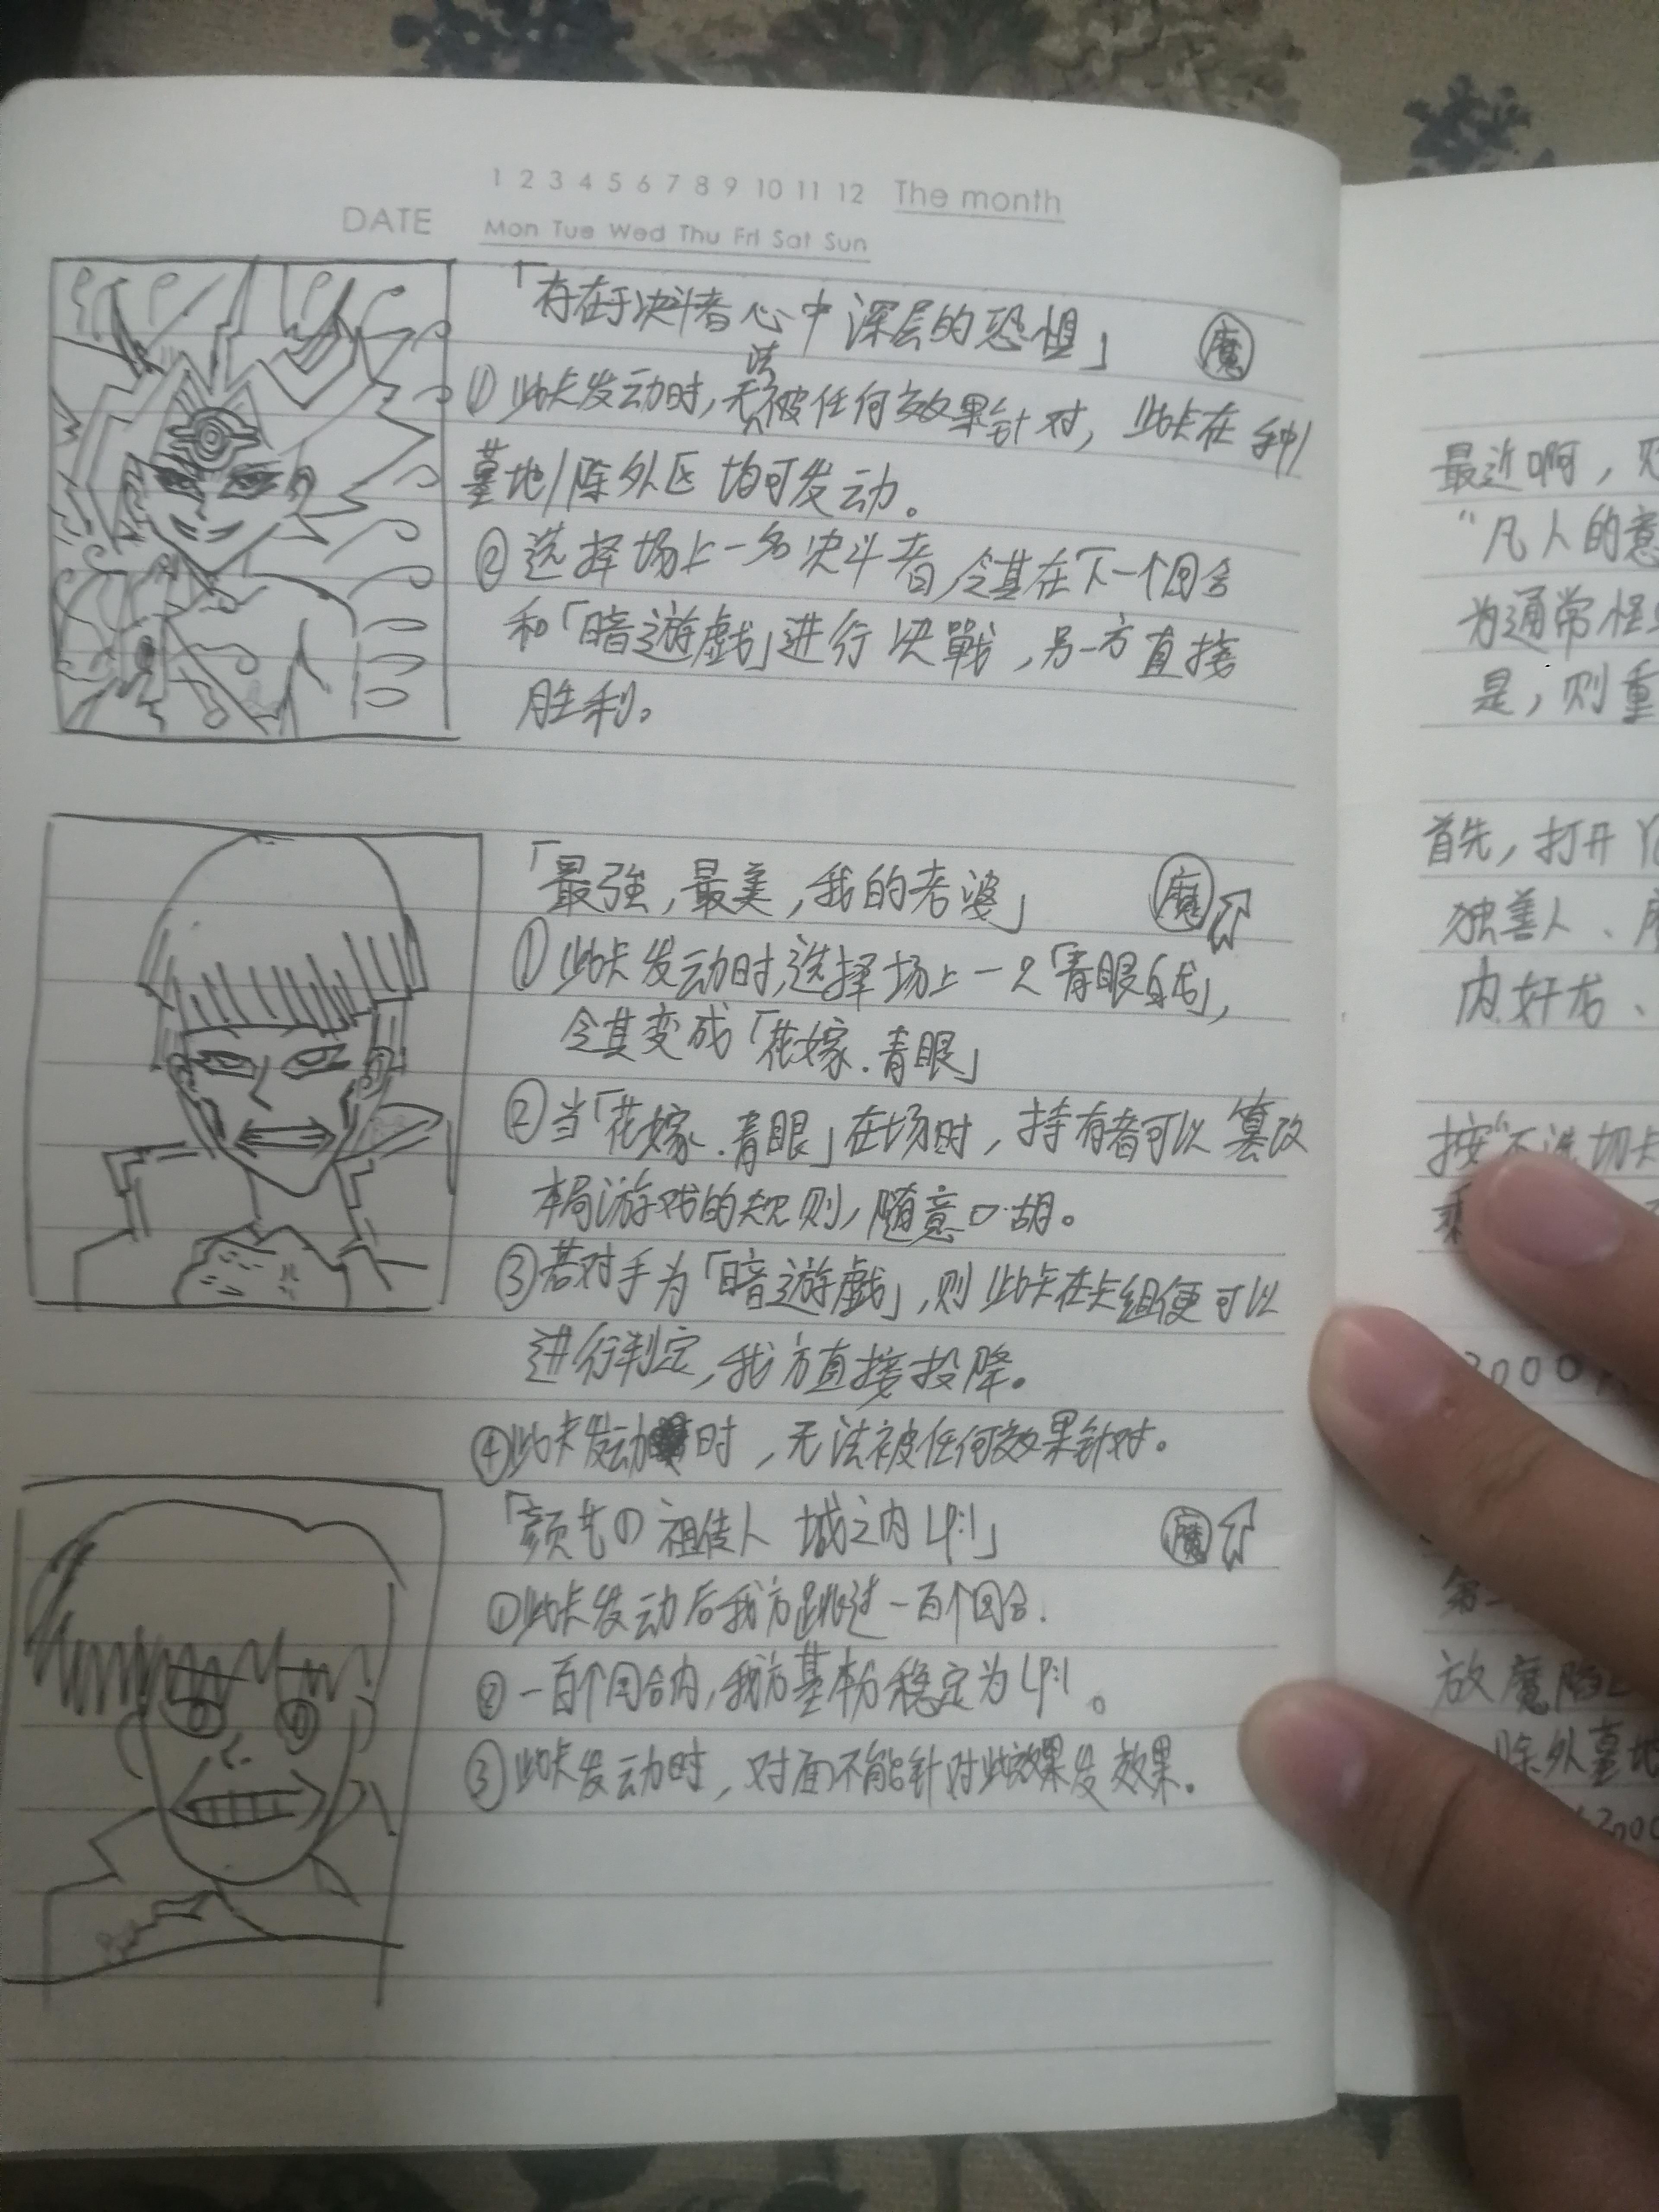 1 2 3 4 5 6 7 8 9 10 11 12 The month
DATE Mon Tue Wed Thu Fri Sat Sun
「存在于决斗者心中深层的恐惧」 魔
① 此卡发动时,无法被任何效果针对, 此卡在
墓地/除外区均可发动。
② 选择场上一名决斗者,令其在下一个回合
和「暗遊戯」进行决戰,另一方直接
胜利。
「最強,最美,我的老婆」 魔
① 此卡发动时,选择场上一只「青眼白龙」,
令其变成「花嫁.青眼」
② 当「花嫁.青眼」在场时,持有者可以篡改
本局游戏的规则,随意口胡。
③ 若对手为「暗遊戯」,则此卡在卡组便可以
进行判定,我方直接投降。
④ 此卡发动时,无法被任何效果针对。
「颜艺の祖传人 城之内 」 魔
① 此卡发动后我方跳过一百个回合.
② 一百个回合内,我方基本分稳定为 。
③ 此卡发动时,对面不能针对此效果发效果。
最近啊,
“凡人的意
为通常怪
是,则重
首先,打开 Y
独善人、
内奸龙、
按“不洗切卡
3000
放魔陷
除外墓地
3000